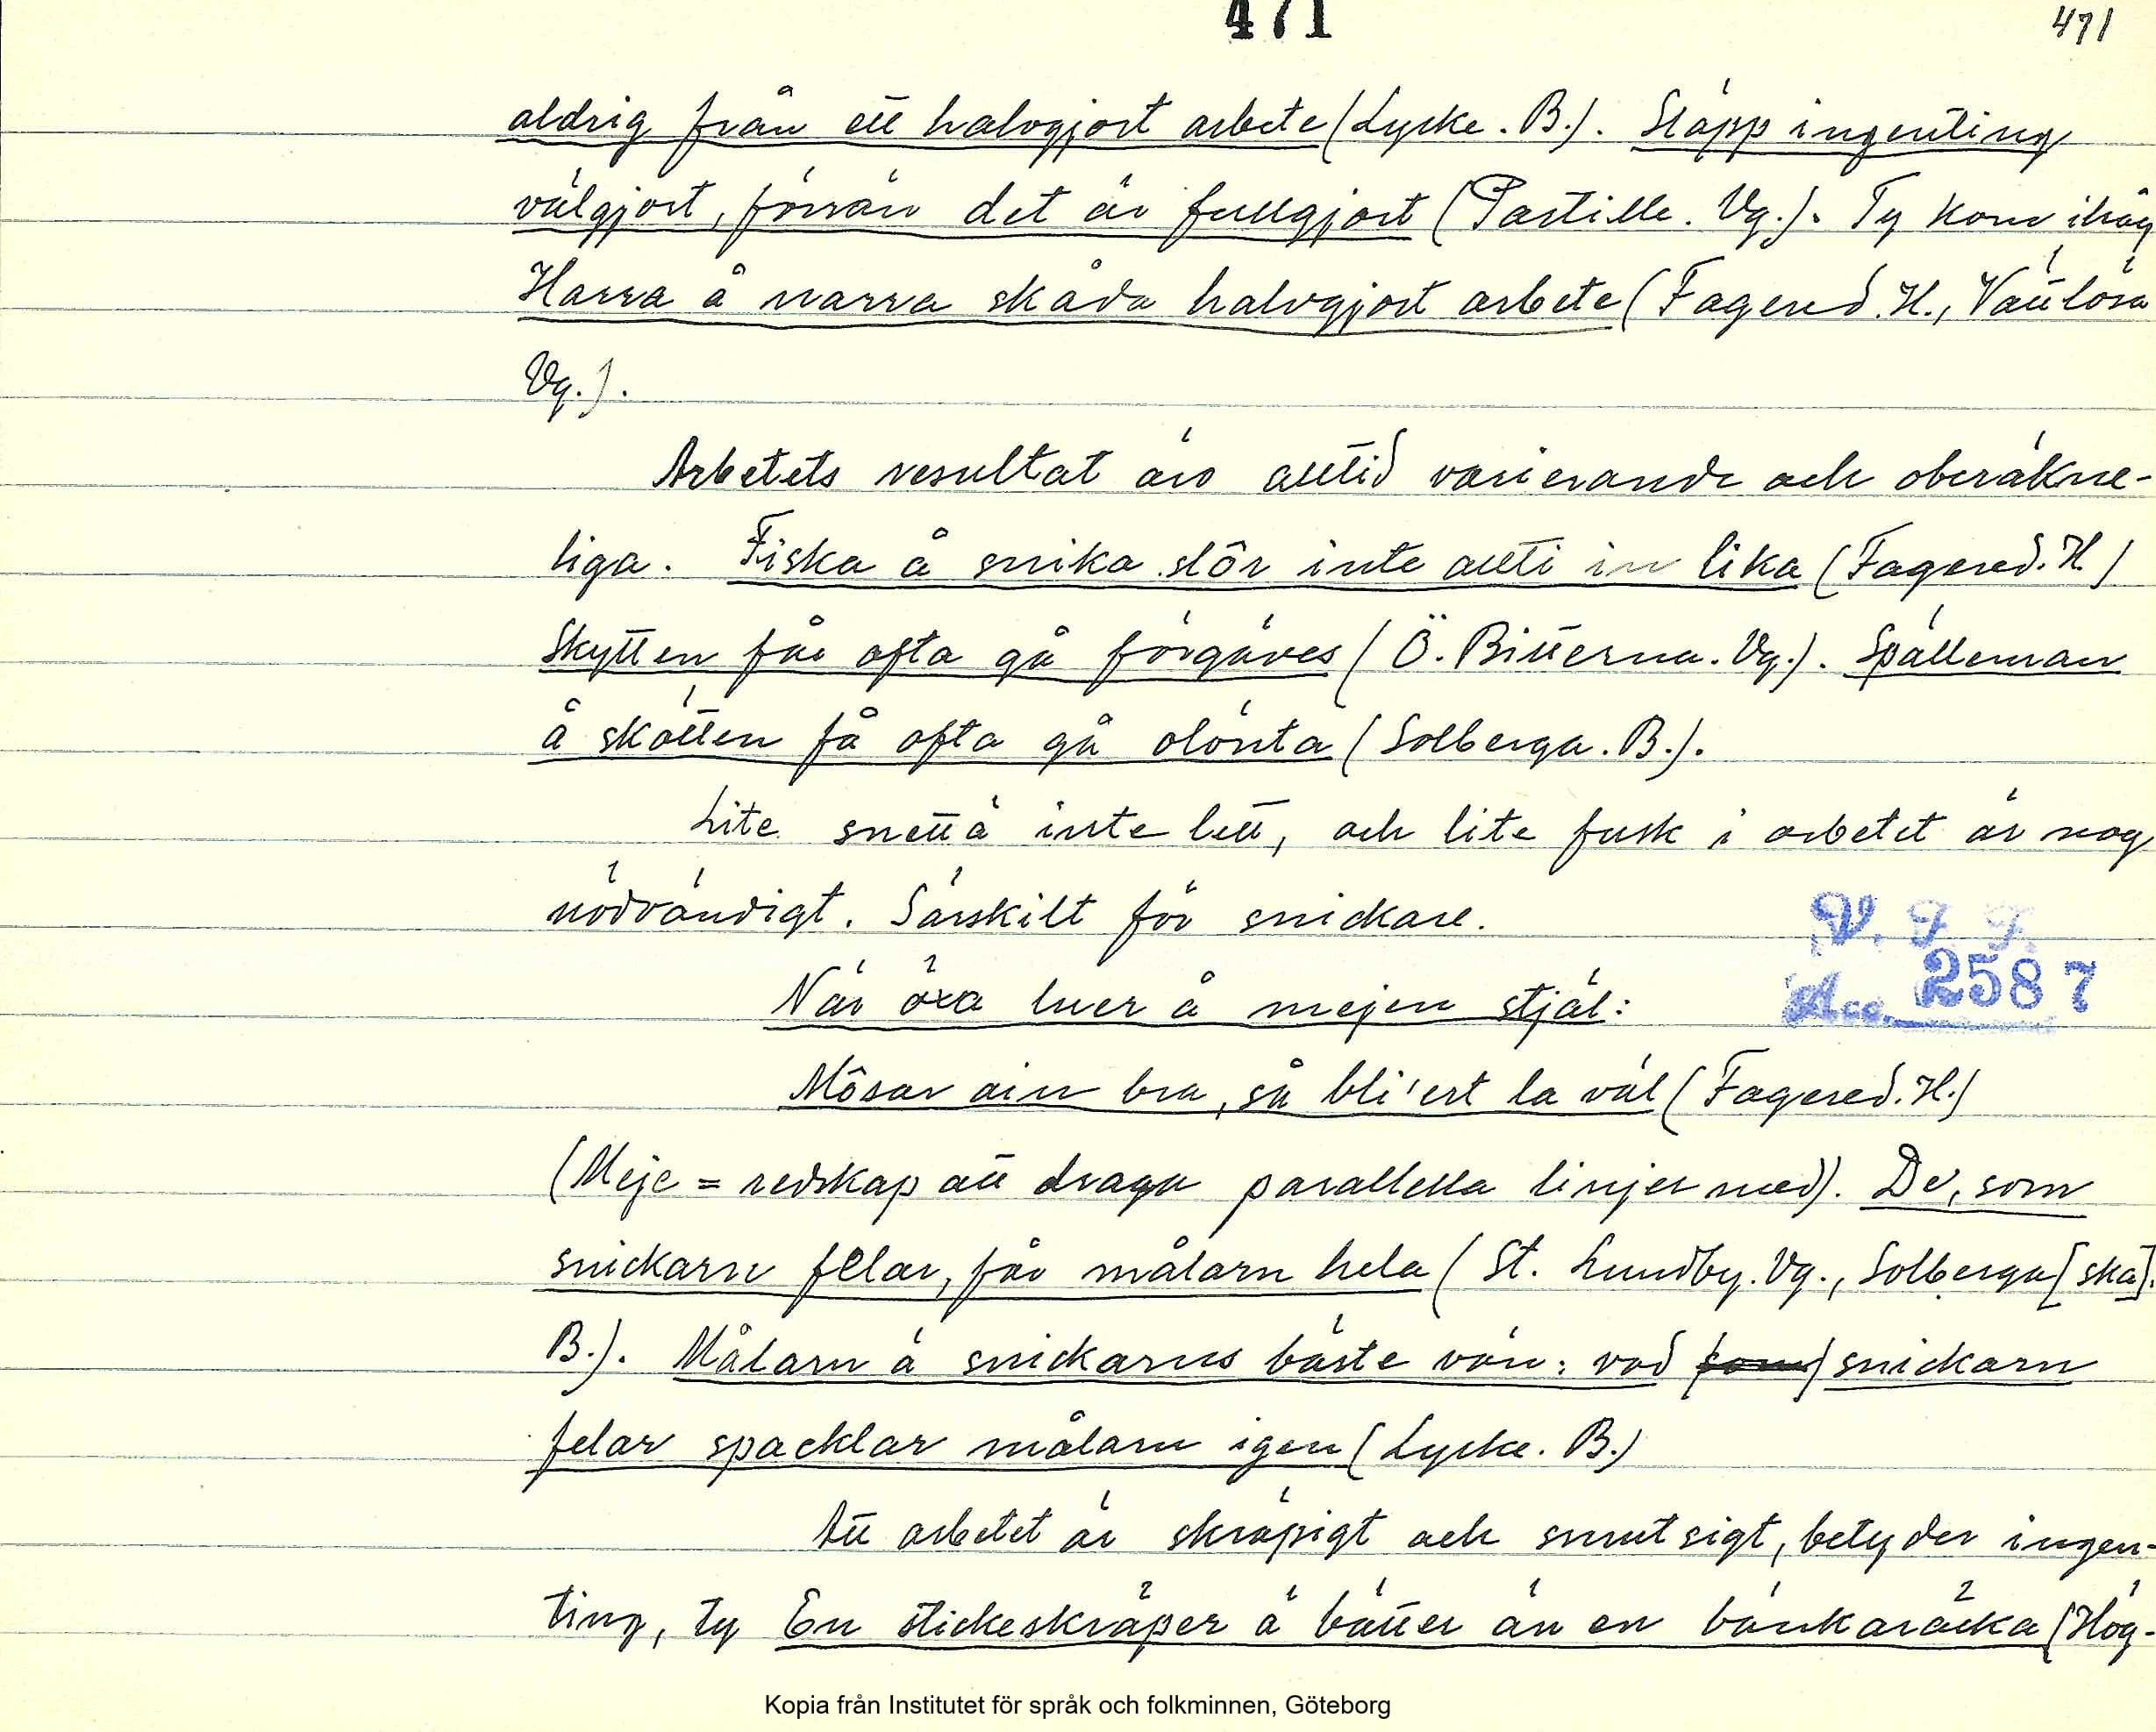 471
471
aldrig från ett halvgjort arbete (Lycke. B.). Släpp ingenting
välgjort, förrän det är fullgjort (Partille. Vg.). Ty kom ihåg
Harra å narra skåda halvgjort arbete (Fagered. H., Vättlösa
Vg.).
Arbetets resultat äro alltid varierande och oberäkne-
liga. Fiska å snika slôr inte allti in lika (Fagered. H.)
Skytten får ofta gå förgäves (Ö. Bitterna. Vg.). Spälleman
å skötten få ofta gå olönta (Solberga. B.).
Lite snett ä inte lett, och lite fusk i arbetet är nog
nödvändigt. Särskilt för snickare.
V. F. F.
När öxa luer å mejen stjäl:
Acc. 2587
Môsar ain bra, så bli'ert la väl (Fagered. H.)
(Meje = redskap att draga parallella linjer med). De, som
snickarn felar, får målarn hela (St. Lundby. Vg., Solberga [ska].
B.). Målarn ä snickarns bäste vän: vad som) snickarn
felar spacklar målarn igen (Lycke. B.)
Att arbetet är skräpigt och smutsigt, betyder ingen-
ting, ty En stickeskräper ä bätter än en bänkaräcka (Hög-
Kopia från Institutet för språk och folkminnen, Göteborg